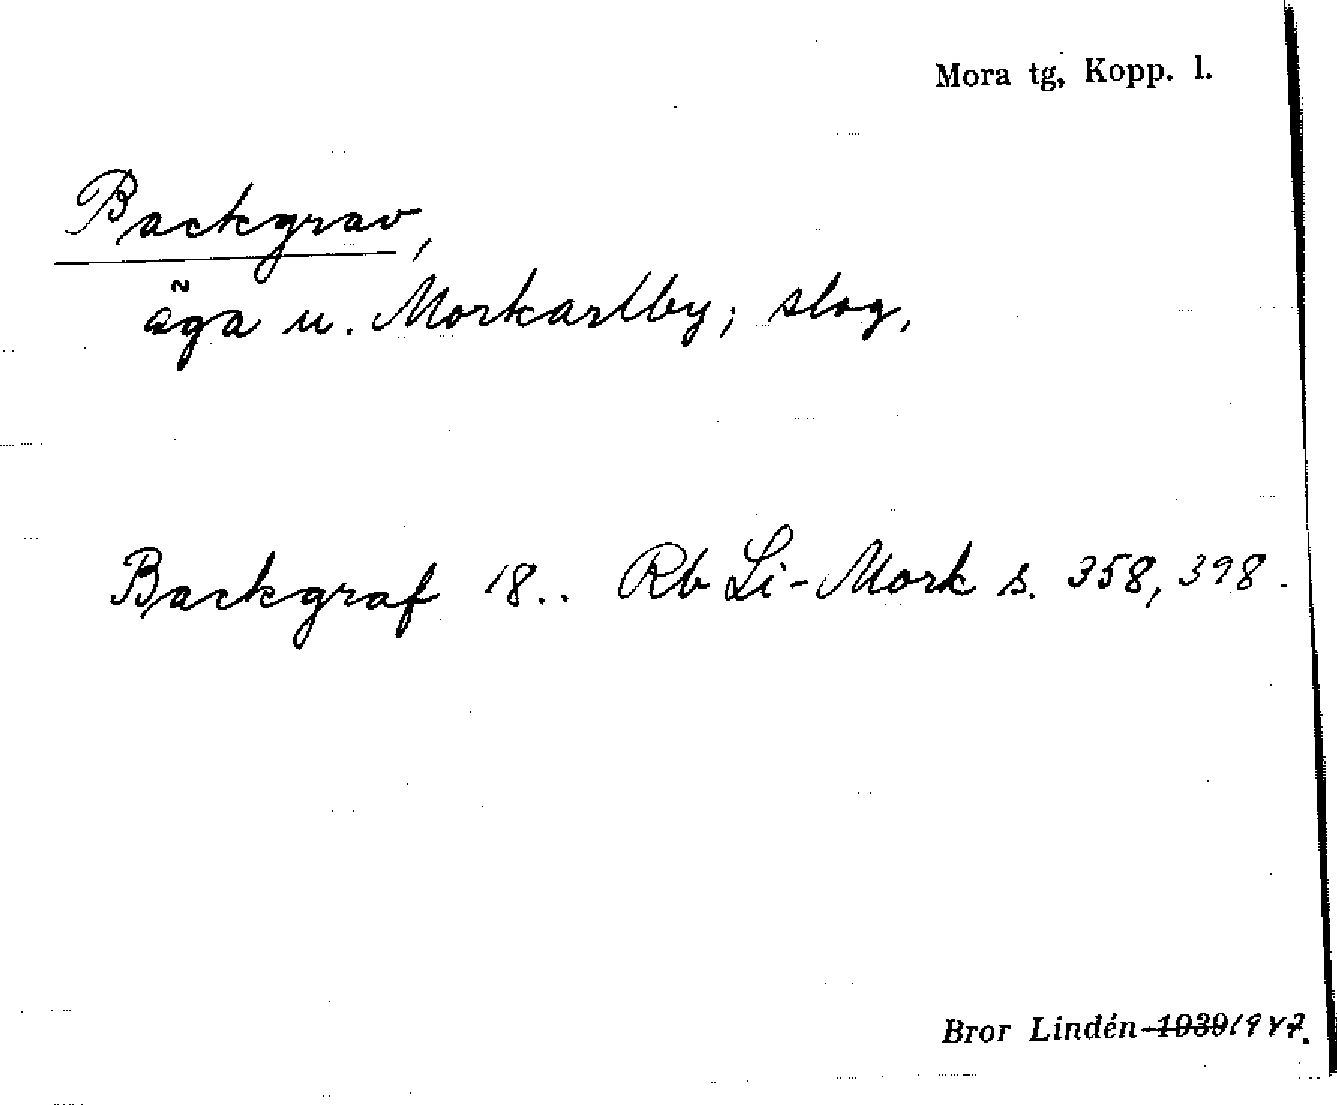 Mora tg, Kopp. l.
Backgrav,
äga u. Morkarlby; slog,
Backgraf 18.. Rb Li-Mork s. 358, 398.
Bror Lindén 1939 1947.